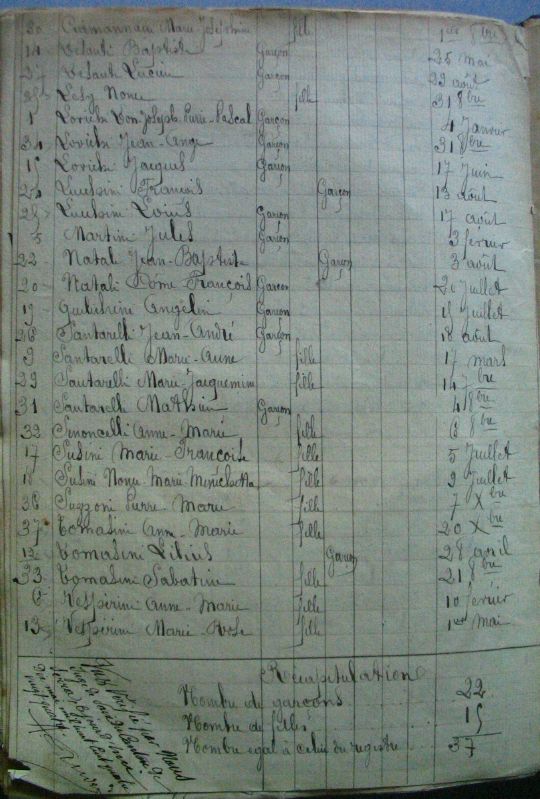 20 Ciamannacci Marie-Joséphine fille 1er 8bre
14 Vesaute Baptiste Garçon 25 mai
27 Vesaute Lucien Garçon 22 août
35 Lesy Nonce fille 31 8bre
1 Lovichi Don-Joseph-Pierre-Pascal Garçon 4 Janvier
34 Lovichi Jean-Ange Garçon 31 8bre
15 Lovichi Jacques Garçon 17 Juin
24 Lucchini François Garçon 13 août
25 Lucchini Louis Garçon 17 août
5 Martini Jules Garçon 3 février
22 Natali Jean-Baptiste Garçon 3 août
20 Natali Dôme-François Garçon 20 Juillet
19 Angelin Garçon 15 Juillet
26 Santarelli Jean-André Garçon 18 août
9 Santarelli Marie-Anne fille 17 mars
29 Santarelli Marie-Jacquemine fille 14 7bre
31 Santarelli Mathieu Garçon 4 8bre
32 Sinoncelli Anne-Marie fille 8 8bre
17 Susini Marie-Françoise fille 5 Juillet
18 Susini Nonce Marie Menichetta fille 9 Juillet
36 Suzzoni Pierre-Marie fille 7 Xbre
37 Tomasini Anne-Marie fille 20 Xbre
12 Tomasini Litius Garçon 28 avril
33 Tomasini Sabatine fille 21 8bre
6 Vespérini Anne-Marie fille 10 février
13 Vespérini Marie-Rose fille 1er Mai
Récapitulation
Nombre de garçons 22
Nombre de filles 15
Nombre égal à celui du registre 37